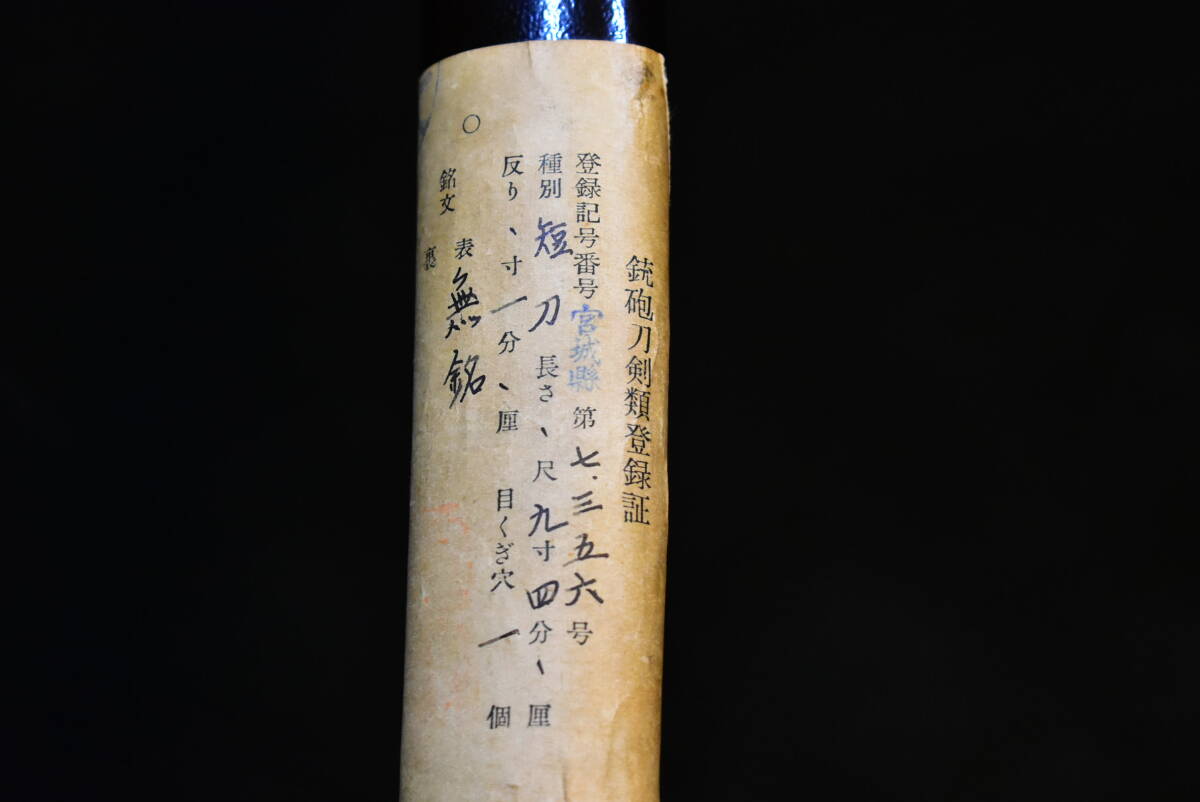 銃砲刀剣類登録証
登録記号番号 宮城縣 第 七、三五六 号
種別 短刀 長さ 、尺 九寸 四分 、厘
反り 、寸 一分 、厘 目くぎ穴 一 個
銘文 表 無銘
裏
○